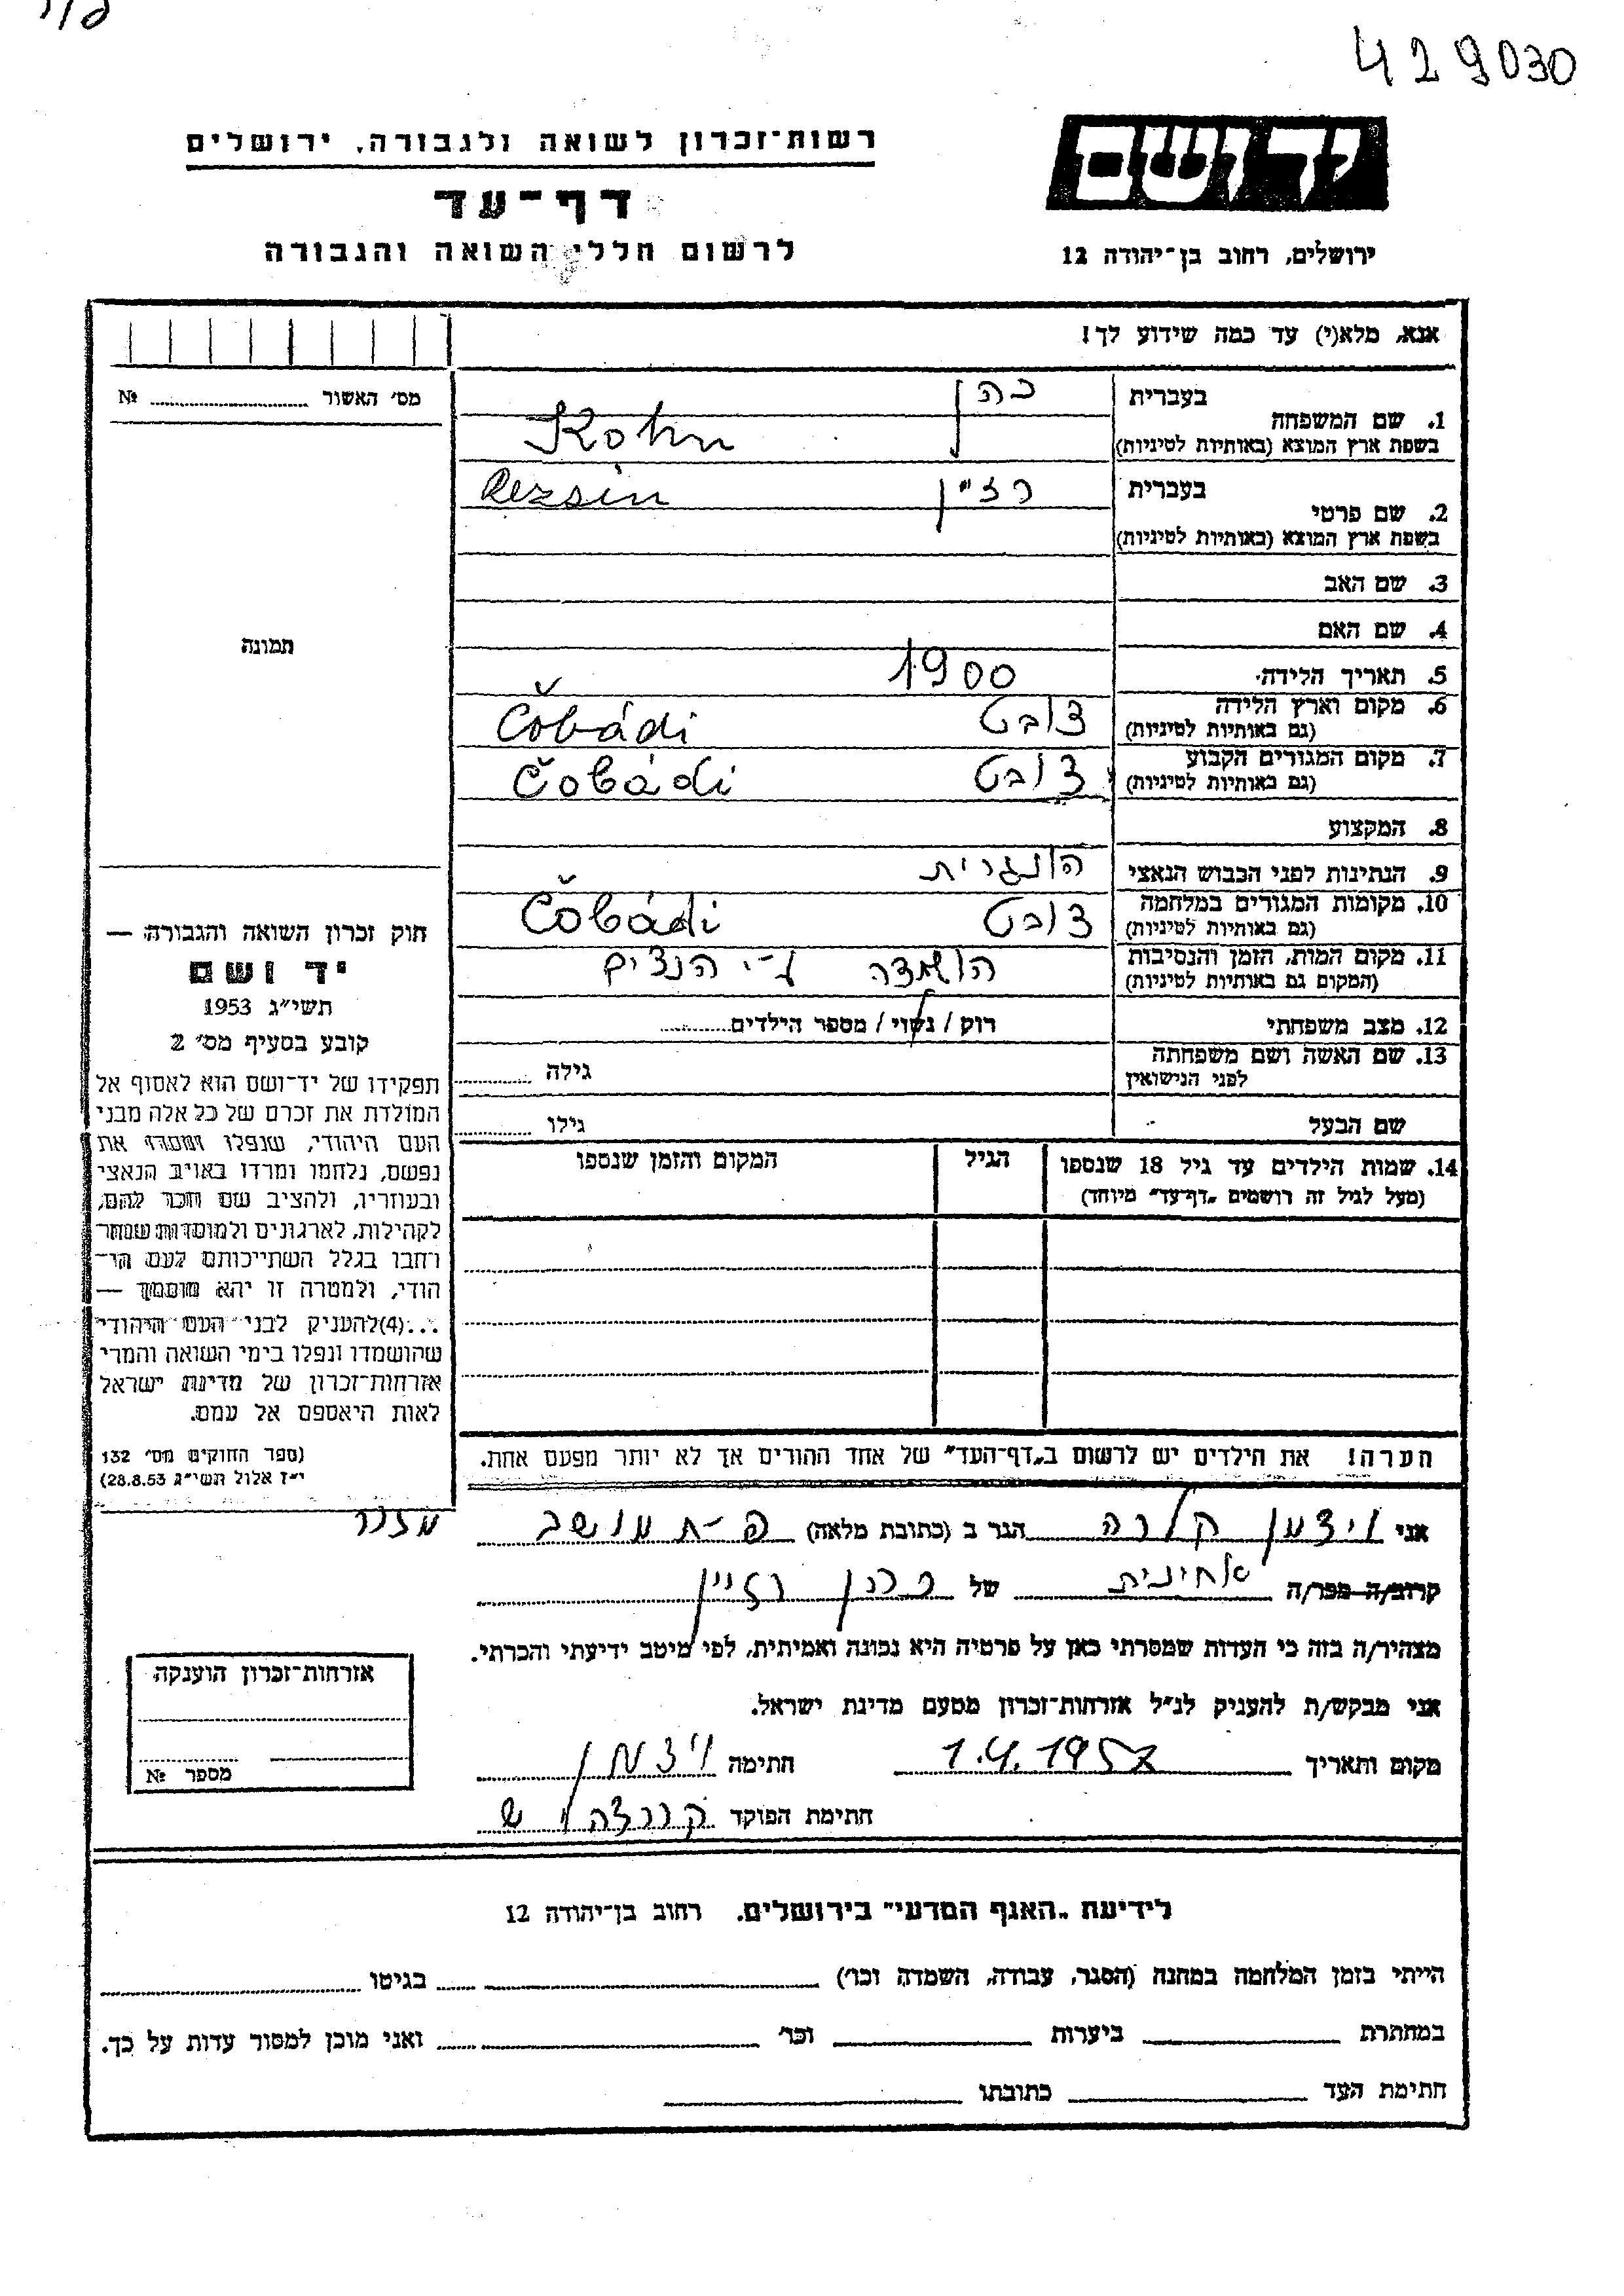 429030
רשות־זכרון לשואה ולגבורה, ירושלים
יד ושם
דף־עד
לרשום חללי השואה והגבורה
ירושלים, רחוב בן־יהודה 12
אנא, מלא(י) עד כמה שידוע לך!
מס׳ האשור № 
1. שם המשפחה
בעברית כהן
בשפת ארץ המוצא (באותיות לטיניות) Kohn
2. שם פרטי
בעברית רזין Rezsin
בשפת ארץ המוצא (באותיות לטיניות)
3. שם האב
4. שם האם
תמונה
5. תאריך הלידה 1900
6. מקום וארץ הלידה צובט Čobádi
(גם באותיות לטיניות)
7. מקום המגורים הקבוע צובט Čobádi
(גם באותיות לטיניות)
8. המקצוע
9. הנתינות לפני הכבוש הנאצי הונגרית
10. מקומות המגורים במלחמה צובט Čobádi
(גם באותיות לטיניות)
11. מקום המות, הזמן והנסיבות הושמדה ע״י הנצים
(המקום גם באותיות לטיניות)
12. מצב משפחתי רוק / נשוי / מספר הילדים
13. שם האשה ושם משפחתה גילה
לפני הנישואין
שם הבעל גילו
14. שמות הילדים עד גיל 18 שנספו הגיל המקום והזמן שנספו
(מעל לגיל זה רושמים „דף־עד״ מיוחד)
הערה! את הילדים יש לרשום ב„דף־העד״ של אחד ההורים אך לא יותר מפעם אחת.
חוק זכרון השואה והגבורה —
יד ושם
תשי״ג 1953
קובע בסעיף מס׳ 2
תפקידו של יד־ושם הוא לאסוף אל
המולדת את זכרם של כל אלה מבני
העם היהודי, שנפלו ומסרו את
נפשם, נלחמו ומרדו באויב הנאצי
ובעוזריו, ולהציב שם וזכר להם,
לקהילות, לארגונים ולמוסדות שנח־
רחבו בגלל השתייכותם לעם הי־
הודי, ולמטרה זו יהא מוסמך —
...(4)להעניק לבני העם היהודי
שהושמדו ונפלו בימי השואה והמרי
אזרחות־זכרון של מדינת ישראל
לאות היאספם אל עמם.
(ספר החוקים מס׳ 132
י״ז אלול תשי״ג 28.8.53)
אני ויצמן קלרה הגר ב (כתובת מלאה) מושב
קרוב/ה מכר/ה אחינית של כהן רזיין
מצהיר/ה בזה כי העדות שמסרתי כאן על פרטיה היא נכונה ואמיתית, לפי מיטב ידיעתי והכרתי.
אני מבקש/ת להעניק לנ״ל אזרחות־זכרון מטעם מדינת ישראל.
מקום ותאריך 1.4.1957 חתימה ויצמן
חתימת הפוקד
אזרחות־זכרון הוענקה
מספר №
לידיעת „האגף המדעי״ בירושלים. רחוב בן־יהודה 12
הייתי בזמן המלחמה במחנה (הסגר, עבודה, השמדה וכו׳) בגיטו
במחתרת ביערות וכו׳ ואני מוכן למסור עדות על כך.
חתימת העד כתובתו